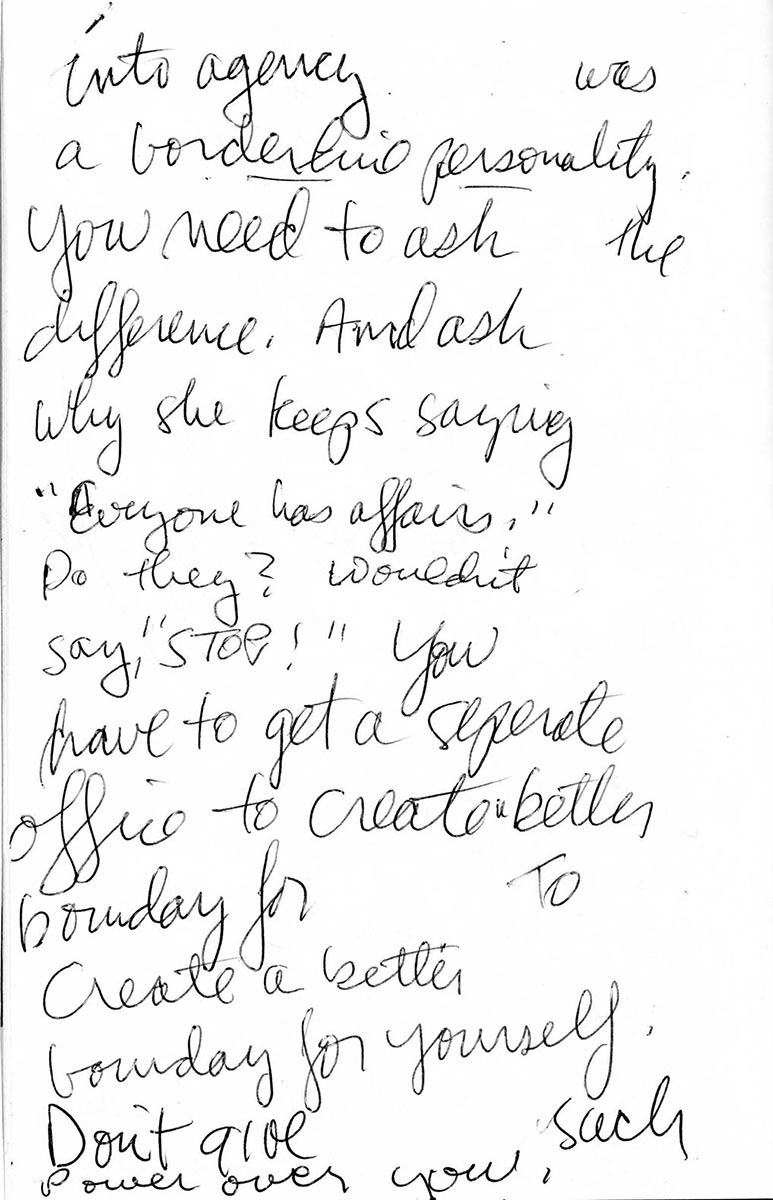 into agency was
a borderline personality.
You need to ask the
difference. And ask
why she keeps saying
"Everyone has affairs."
Do they? Wouldn't
say, "STOP!" You
have to get a seperate
office to create a better
bounday for To
Create a better
bounday for yourself.
Don't give such
Power over you.